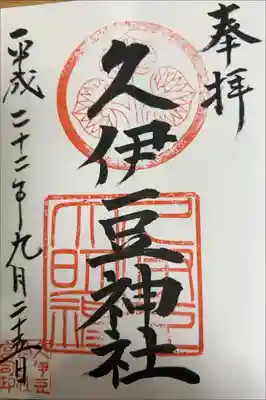 奉拝
久伊豆神社
平成二十二年九月二十五日